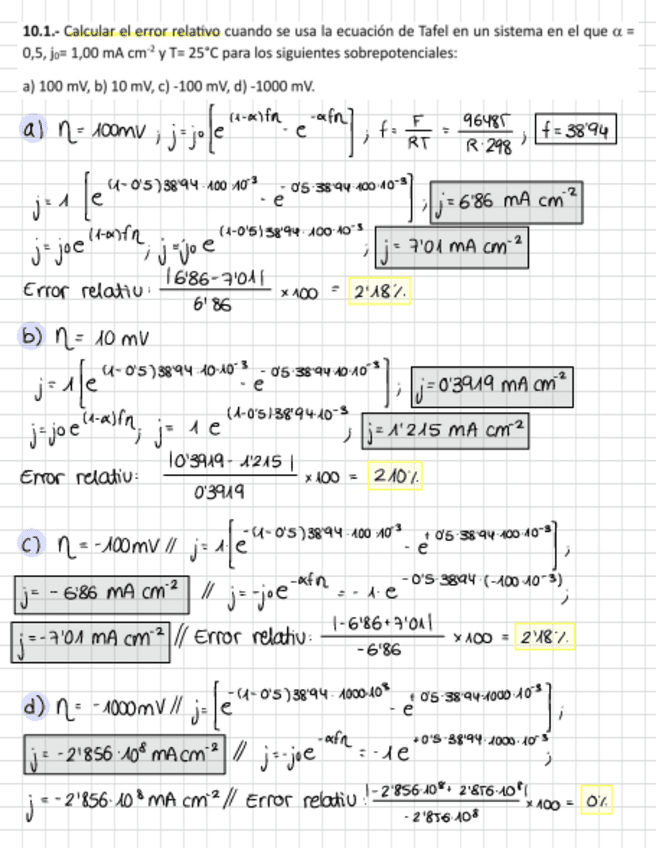 10.1.- Calcular el error relativo cuando se usa la ecuación de Tafel en un sistema en el que α =
0,5, j₀= 1,00 mA cm⁻² y T= 25°C para los siguientes sobrepotenciales:
a) 100 mV, b) 10 mV, c) -100 mV, d) -1000 mV.
a) η = 100mV ; j = j₀ [e^(1-α)fη - e^-αfη] ; f = F/RT = 96485/R·298 ; f = 38'94
j = 1 [e^(1-0'5)38'94·100·10⁻³ - e^-0'5·38'94·100·10⁻³] ; j = 6'86 mA cm⁻²
j = j₀e^(1-α)fη ; j = j₀ e^(1-0'5)38'94·100·10⁻³ ; j = 7'01 mA cm⁻²
Error relatiu: |6'86-7'01|/6'86 × 100 = 2'18%
b) η = 10 mV
j = 1 [e^(1-0'5)38'94·10·10⁻³ - e^-0'5·38'94·10·10⁻³] ; j = 0'3919 mA cm⁻²
j = j₀e^(1-α)fη ; j = 1 e^(1-0'5)38'94·10⁻³ ; j = 1'215 mA cm⁻²
Error relatiu: |0'3919 - 1'215|/0'3919 × 100 = 210%
c) η = -100mV // j = 1·[e^-(1-0'5)38'94·100·10⁻³ - e^+0'5·38'94·100·10⁻³] ;
j = -6'86 mA cm⁻² // j = -j₀e^-αfη = -1·e^-0'5·38'94·(-100·10⁻³) ;
j = -7'01 mA cm⁻² // Error relatiu: |-6'86+7'01|/-6'86 × 100 = 2'18%
d) η = -1000mV // j = [e^-(1-0'5)38'94·1000·10⁸ - e^+0'5·38'94·1000·10⁻³] ;
j = -2'856·10⁸ mA cm⁻² // j = -j₀e^-αfη = -1e^+0'5·38'94·1000·10⁻³ ;
j = -2'856·10⁸ mA cm⁻² // Error relatiu: |-2'856·10⁸ + 2'856·10⁸|/-2'856·10⁸ × 100 = 0%